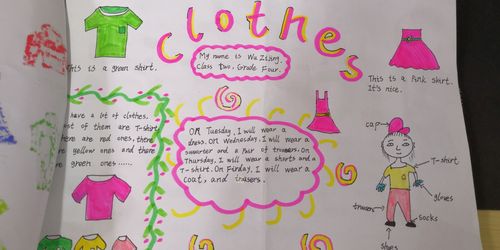 Clothes
This is a green shirt.
My name is Wu Ziling.
Class Two, Grade Four.
This is a Pink skirt.
It's nice.
have a lot of clothes.
ost of them are T-shirt
here are red ones, there
re yellow ones and there
re green ones......
On Tuesday, I will wear a
dress. On Wednesday, I will wear a
sweater and a Pair of trousers. On
Thursday, I will wear a shorts and a
T-shirt. On Firday, I will wear a
coat, and trasers.
cap
T-shirt
gloves
trousers
socks
shoes